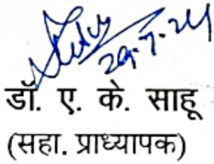 29.7.24
डॉ. ए. के. साहू
(सहा. प्राध्यापक)